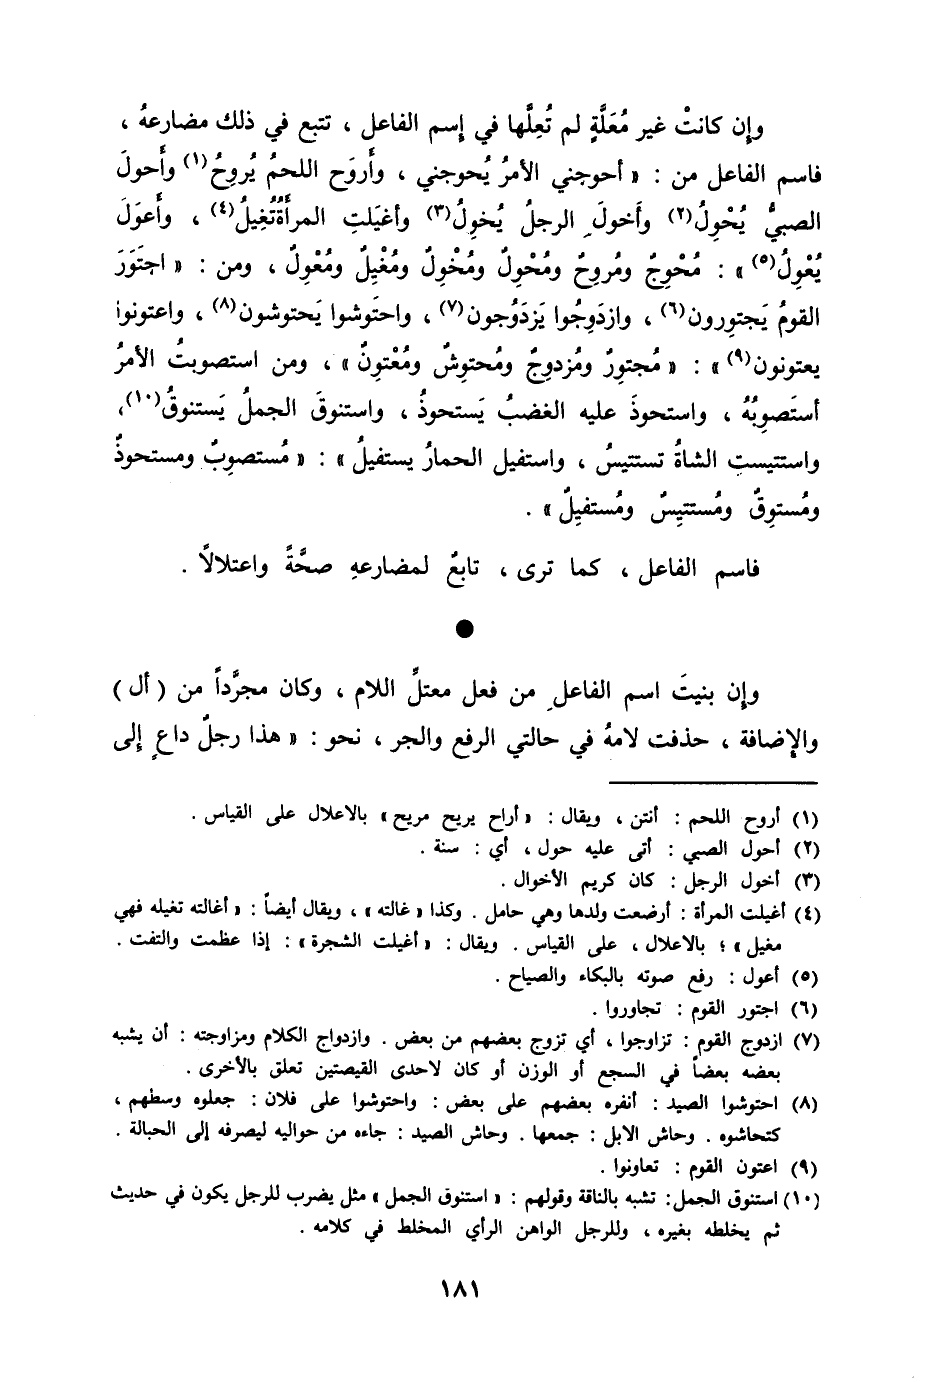 وإن كانتْ غير مُعَلَّةٍ لم تُعِلَّها في إسم الفاعل ، تتبع في ذلك مضارعهُ ،
فاسم الفاعل من : « أحوجني الأمرُ يُحوجني ، وأروَح اللحمُ يُروِحُ(١) وأَحولَ
الصبيُّ يُحْوِلُ(٢) وأَخولَ الرجلُ يُخوِلُ(٣) وأغيَلتِ المرأَةُتُغيِلُ(٤) ، وأَعوَلَ
يُعْوِلُ(٥) » : مُحْوِجٌ ومُروِحٌ ومُحْوِلٌ ومُخْوِلٌ ومُغْيِلٌ ومُعْوِلٌ ، ومن : « اجتَوَرَ
القومُ يَجتوِرون(٦) ، وازدَوِجُوا يَزدَوُجون(٧) ، واحتَوشوا يَحتوشون(٨) ، واعتونوا
يعتونون(٩) » : « مُجتوِرٌ ومُزدوِجٌ ومُحتوِشٌ ومُعْتوِنٌ » ، ومن استصوبتُ الأمرُ
أستَصوِبُهُ ، واستحوذَ عليه الغضبُ يَستحوِذُ ، واستنوقَ الجملُ يَستنوِقُ(١٠)،
واستتيستِ الشاةُ تستتيسُ ، واستفيل الحمارُ يستفيلُ » : « مُستصوِبٌ ومستحوذٌ
ومُستوِقٌ ومُستتيِسٌ ومُستفيِلٌ » .
فاسم الفاعل ، كما ترى ، تابعٌ لمضارعهِ صحَّةً واعتلالاً .
●
وإن بنيتَ اسم الفاعلِ من فعل معتلِّ اللام ، وكان مجرَّداً من ( أل )
والإضافة ، حذفت لامهُ في حالتي الرفع والجر ، نحو : « هذا رجلٌ داعٍ إلى
(١) أروح اللحم : أنتن ، ويقال : « أراح يريح مريح » بالاعلال على القياس .
(٢) أحول الصبي : أتى عليه حول ، أي : سنة .
(٣) أخول الرجل : كان كريم الأخوال .
(٤) أغيلت المرأة : أرضعت ولدها وهي حامل . وكذا « غالته » ، ويقال أيضاً : « أغالته تغيله فهي
مغيل » ؛ بالاعلال ، على القياس . ويقال : « أغيلت الشجرة » : إذا عظمت والتفت .
(٥) أعول : رفع صوته بالبكاء والصياح .
(٦) اجتور القوم : تجاوروا .
(٧) ازدوج القوم : تزاوجوا ، أي تزوج بعضهم من بعض . وازدواج الكلام ومزاوجته : أن يشبه
بعضه بعضاً في السجع أو الوزن أو كان لاحدى القيصتين تعلق بالأخرى .
(٨) احتوشوا الصيد : أنفره بعضهم على بعض : واحتوشوا على فلان : جعلوه وسطهم ،
كتحاشوه . وحاش الابل : جمعها . وحاش الصيد : جاءه من حواليه ليصرفه إلى الحبالة .
(٩) اعتون القوم : تعاونوا .
(١٠) استنوق الجمل: تشبه بالناقة وقولهم : « استنوق الجمل » مثل يضرب للرجل يكون في حديث
ثم يخلطه بغيره ، وللرجل الواهن الرأي المخلط في كلامه .
١٨١